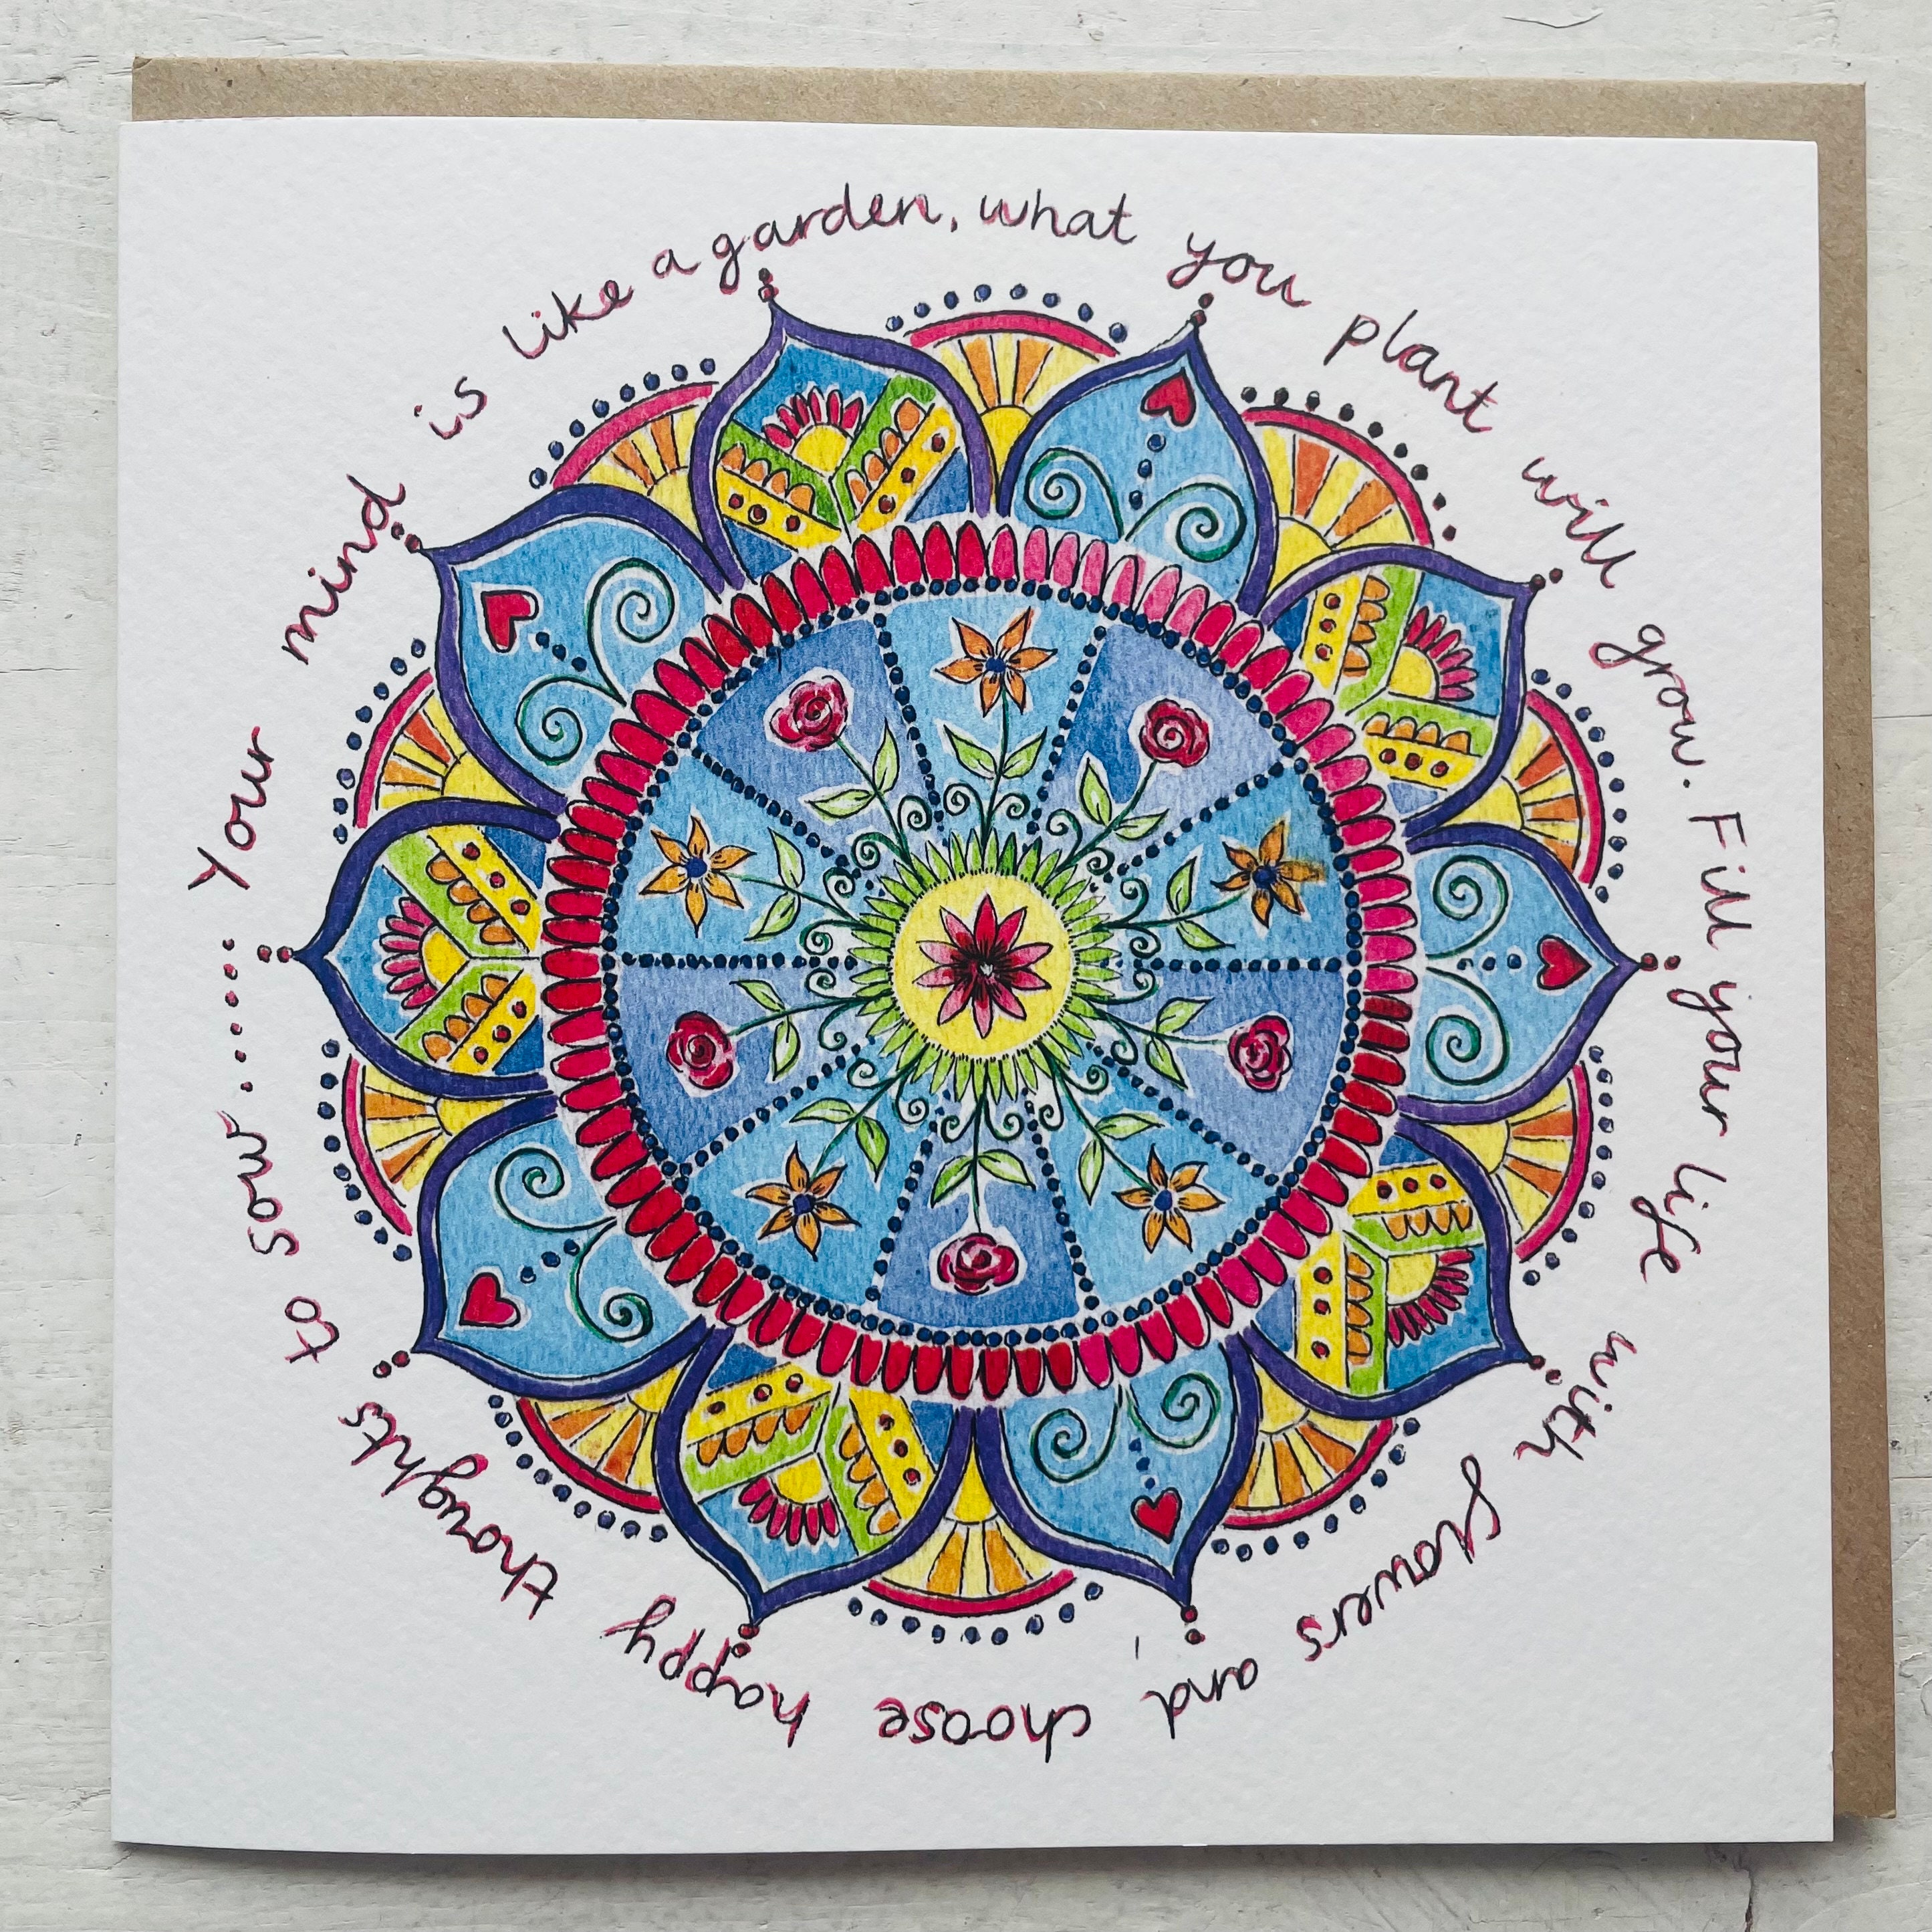 Your mind is like a garden, what you plant will grow. Fill your life with flowers and choose happy thoughts to sow......